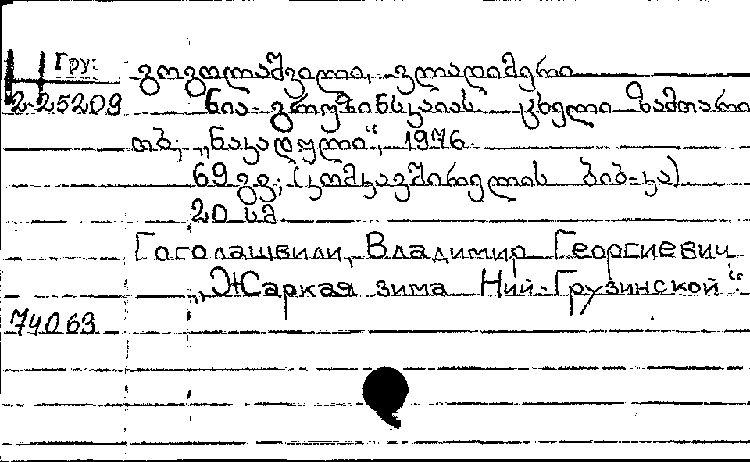 Гру:
გოგოლაშვილი, ვლადიმერი
2-25209
ნია-გრუზინსკაიას ცხელი ზამთარი
თბ., „ნაკადული“, 1976.
69 გვ; (კომკავშირელის ბიბ-კა)
20 სმ.
Гоголашвили, Владимир Георгиевич
„Жаркая зима Ний-Грузинской“.
74063